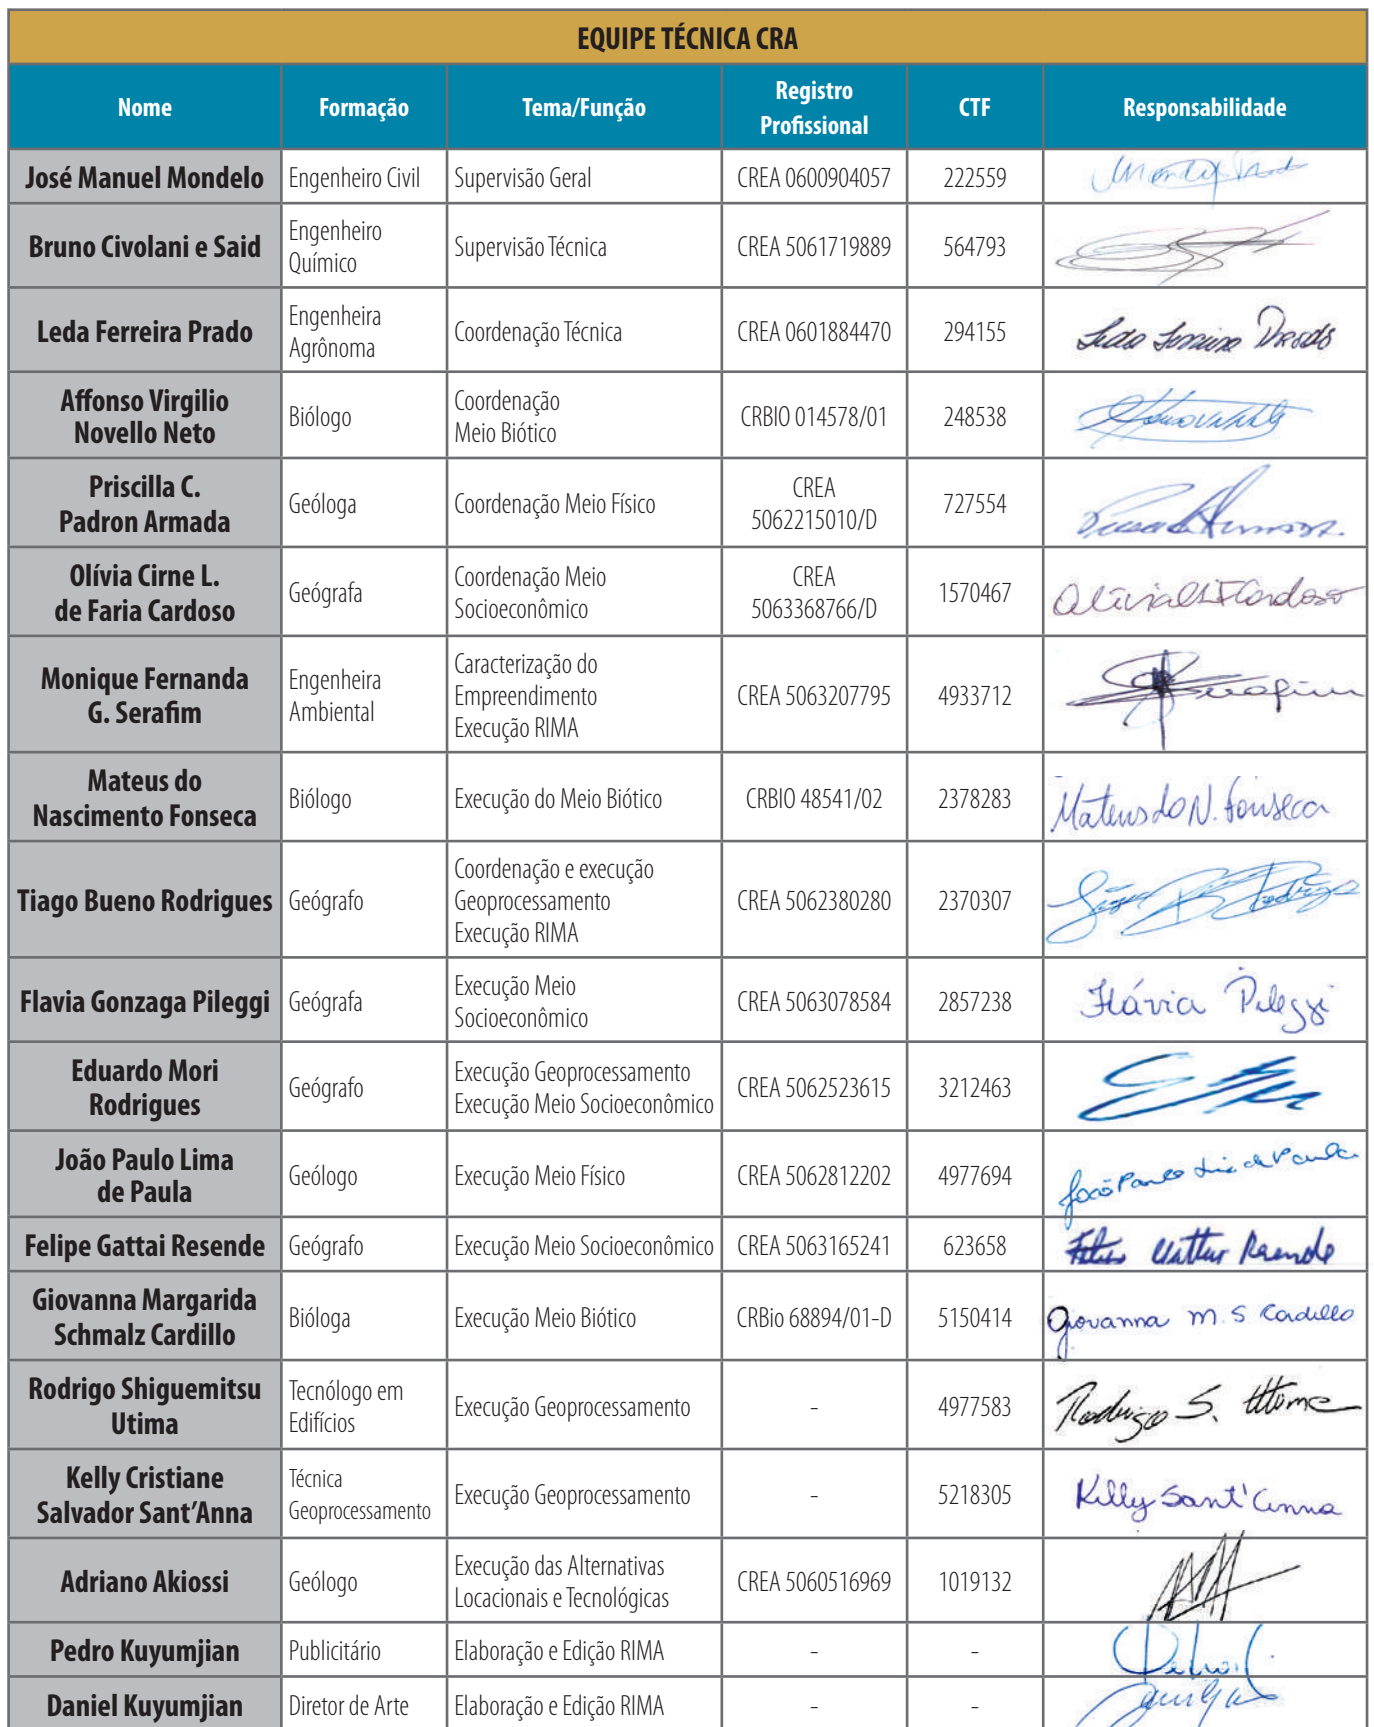 EQUIPE TÉCNICA CRA
Nome Formação Tema/Função Registro Profissional CTF Responsabilidade
José Manuel Mondelo Engenheiro Civil Supervisão Geral CREA 0600904057 222559
Bruno Civolani e Said Engenheiro Químico Supervisão Técnica CREA 5061719889 564793
Leda Ferreira Prado Engenheira Agrônoma Coordenação Técnica CREA 0601884470 294155 Leda Ferreira Prado
Affonso Virgilio Novello Neto Biólogo Coordenação Meio Biótico CRBIO 014578/01 248538
Priscilla C. Padron Armada Geóloga Coordenação Meio Físico CREA 5062215010/D 727554
Olívia Cirne L. de Faria Cardoso Geógrafa Coordenação Meio Socioeconômico CREA 5063368766/D 1570467
Monique Fernanda G. Serafim Engenheira Ambiental Caracterização do Empreendimento Execução RIMA CREA 5063207795 4933712 Serafim
Mateus do Nascimento Fonseca Biólogo Execução do Meio Biótico CRBIO 48541/02 2378283 Mateus do N. Fonseca
Tiago Bueno Rodrigues Geógrafo Coordenação e execução Geoprocessamento Execução RIMA CREA 5062380280 2370307
Flavia Gonzaga Pileggi Geógrafa Execução Meio Socioeconômico CREA 5063078584 2857238 Flávia Pileggi
Eduardo Mori Rodrigues Geógrafo Execução Geoprocessamento Execução Meio Socioeconômico CREA 5062523615 3212463
João Paulo Lima de Paula Geólogo Execução Meio Físico CREA 5062812202 4977694 João Paulo Lima de Paula
Felipe Gattai Resende Geógrafo Execução Meio Socioeconômico CREA 5063165241 623658 Felipe Gattai Resende
Giovanna Margarida Schmalz Cardillo Bióloga Execução Meio Biótico CRBio 68894/01-D 5150414 Giovanna M. S Cardillo
Rodrigo Shiguemitsu Utima Tecnólogo em Edifícios Execução Geoprocessamento - 4977583 Rodrigo S. Utima
Kelly Cristiane Salvador Sant'Anna Técnica Geoprocessamento Execução Geoprocessamento - 5218305 Kelly Sant'Anna
Adriano Akiossi Geólogo Execução das Alternativas Locacionais e Tecnológicas CREA 5060516969 1019132
Pedro Kuyumjian Publicitário Elaboração e Edição RIMA - -
Daniel Kuyumjian Diretor de Arte Elaboração e Edição RIMA - -